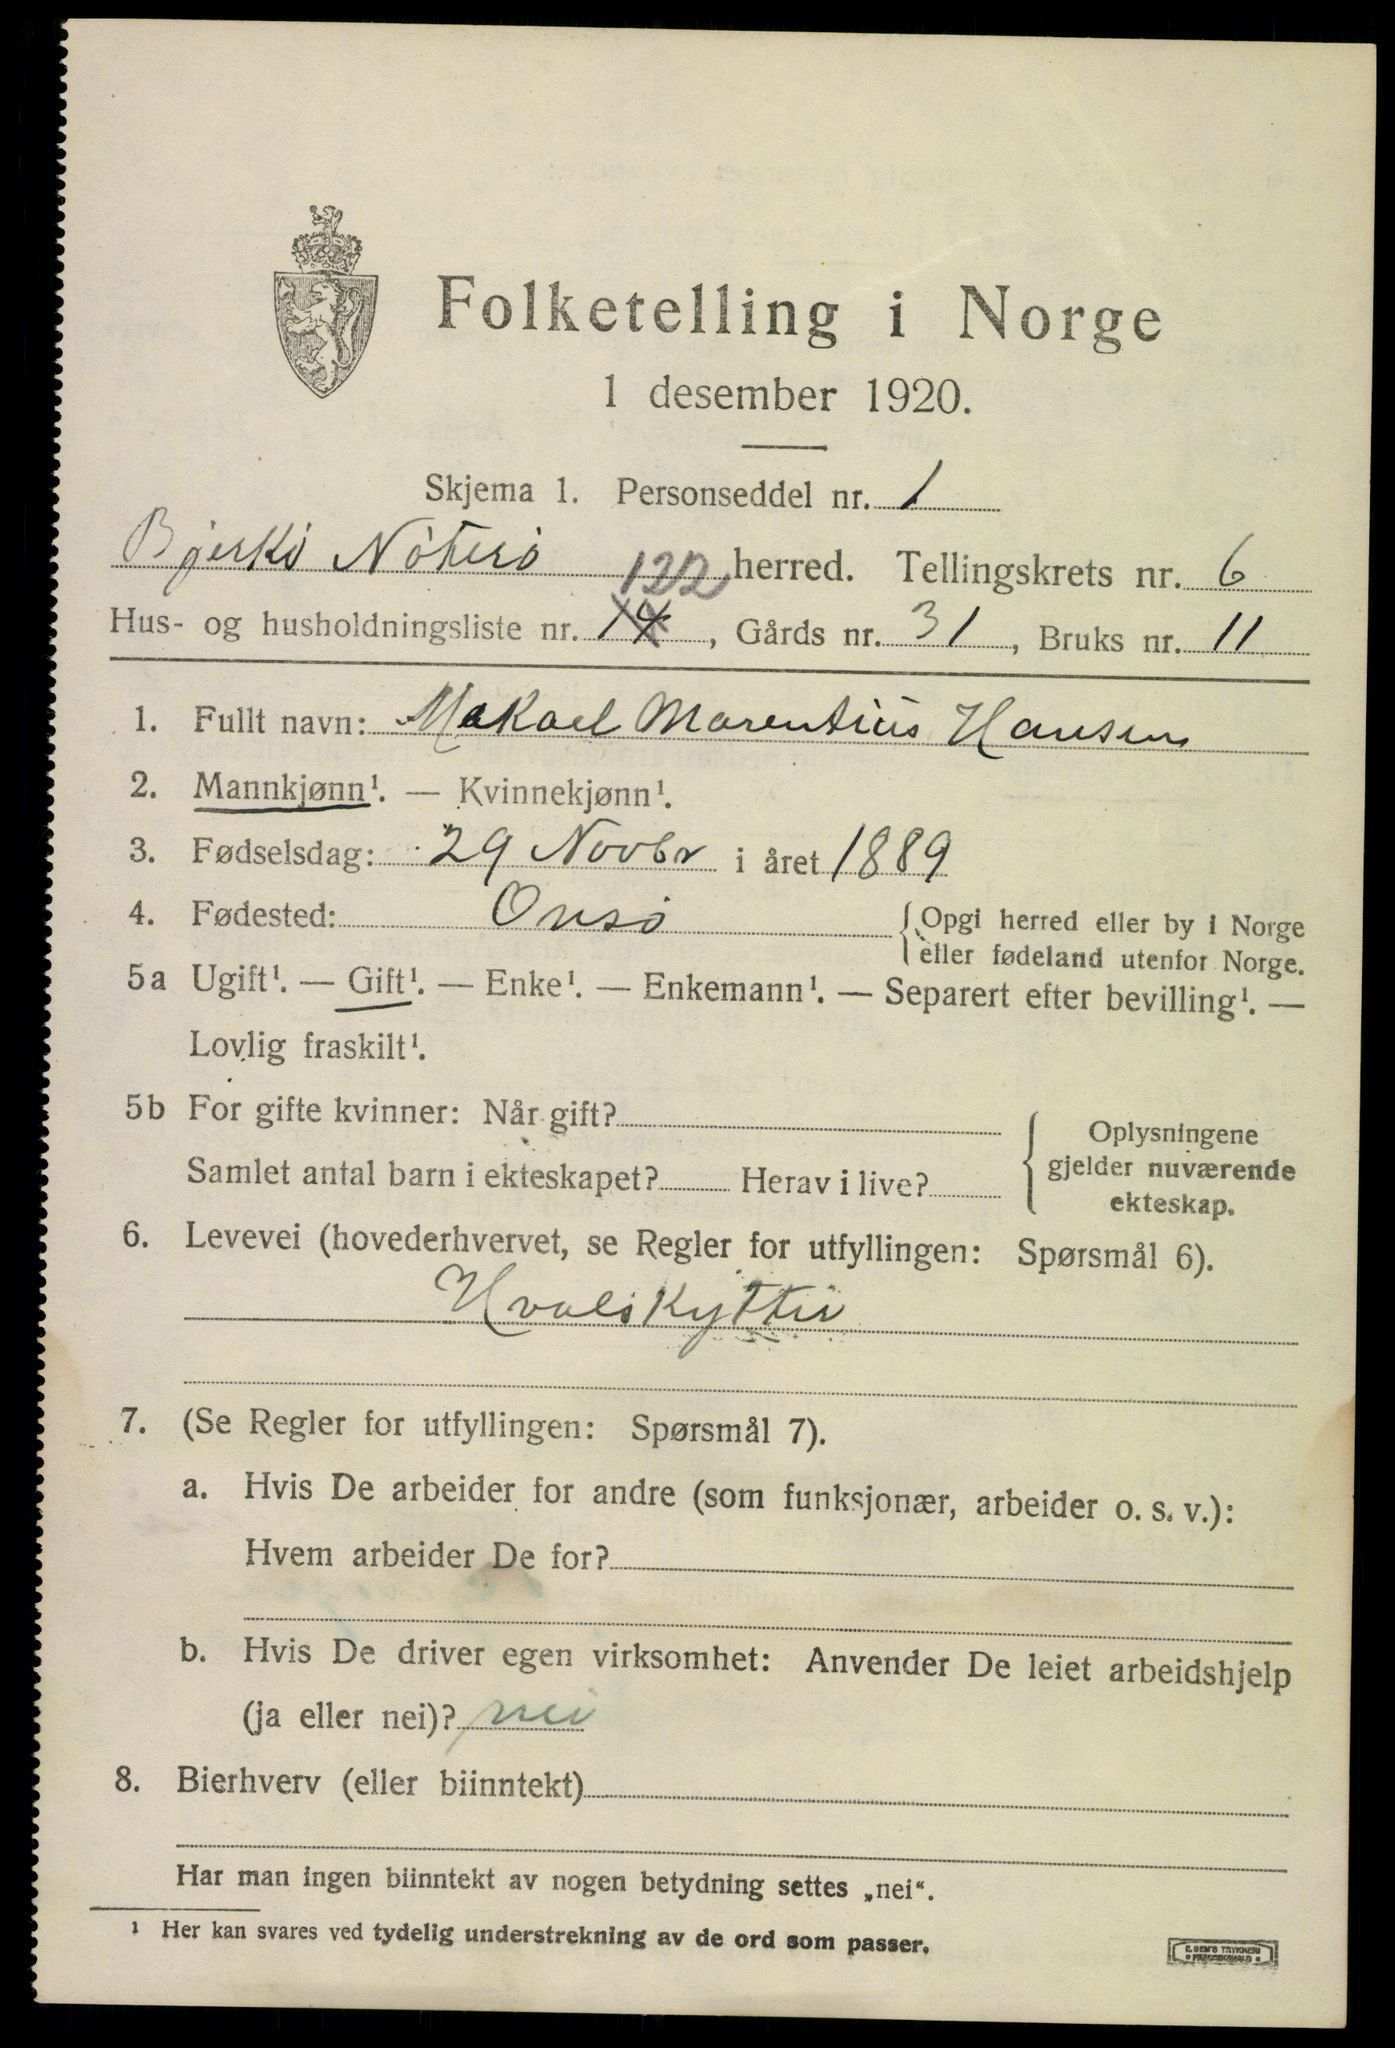 Folketelling i Norge
1 desember 1920.
Skjema 1. Personseddel nr. 1
Bjerkø Nøterø 122 herred. Tellingskrets nr. 6
Hus- og husholdningsliste nr. 14, Gårds nr. 31, Bruks nr. 11
1. Fullt navn: Mekael Marentius Hansen
2. Mannkjønn¹. — Kvinnekjønn¹.
3. Fødselsdag: 29 Novbr i året 1889
4. Fødested: Onsø {Opgi herred eller by i Norge
eller fødeland utenfor Norge.
5a Ugift¹. — Gift¹. — Enke¹. — Enkemann¹. — Separert efter bevilling¹. —
Lovlig fraskilt¹.
5b For gifte kvinner: Når gift?
Samlet antal barn i ekteskapet? Herav i live?
Oplysningene
gjelder nuværende
ekteskap.
6. Levevei (hovederhvervet, se Regler for utfyllingen: Spørsmål 6).
Hvalskytter
7. (Se Regler for utfyllingen: Spørsmål 7).
a. Hvis De arbeider for andre (som funksjonær, arbeider o. s. v.):
Hvem arbeider De for?
b. Hvis De driver egen virksomhet: Anvender De leiet arbeidshjelp
(ja eller nei)? nei
8. Bierhverv (eller biinntekt)
Har man ingen biinntekt av nogen betydning settes „nei“.
¹ Her kan svares ved tydelig understrekning av de ord som passer.
E. SEM'S TRYKKERI
FREDRIKSHALD